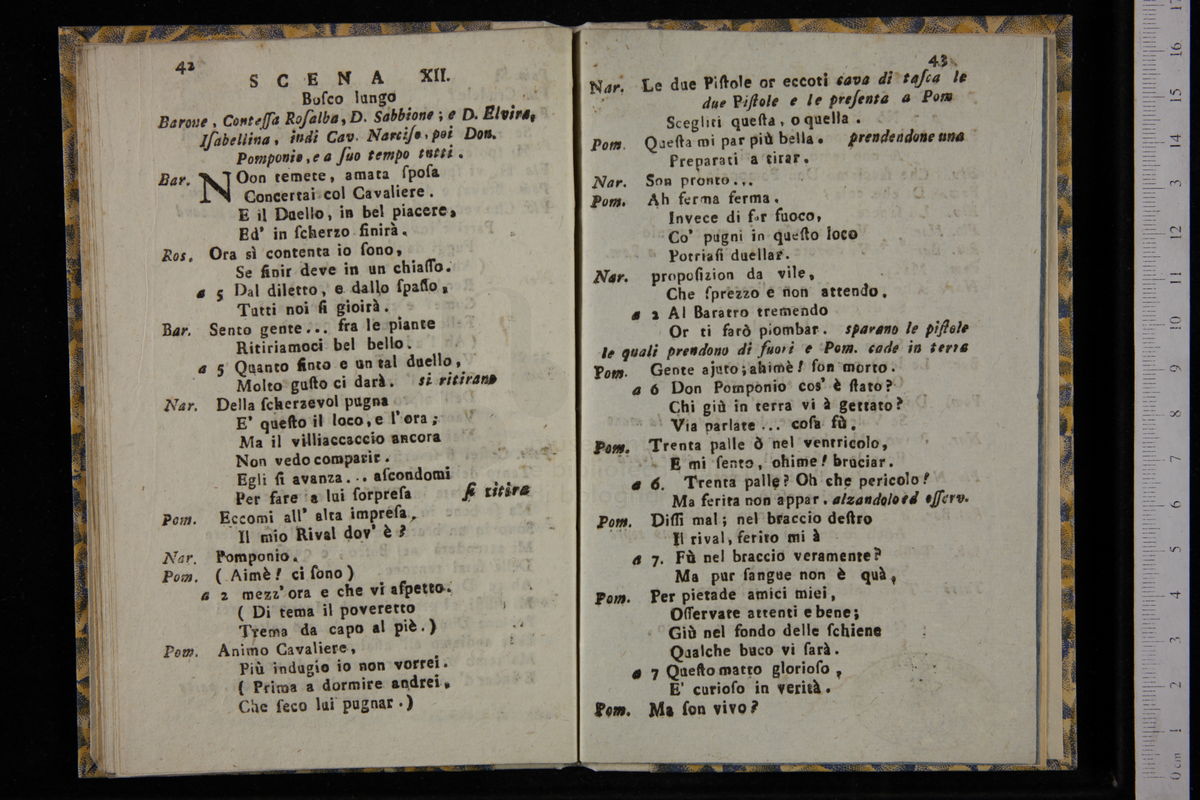 42
SCENA XII.
Boſco lungo
Barone, Conteſſa Roſalba, D. Sabbione; e D. Elvira,
Iſabellina, indi Cav. Narciſo, poi Don.
Pomponio, e a ſuo tempo tutti.
Bar. NOon temete, amata ſpoſa
Concertai col Cavaliere.
E il Duello, in bel piacere,
Ed' in ſcherzo finirà.
Ros. Ora sì contenta io ſono,
Se finir deve in un chiaſſo.
a 5 Dal diletto, e dallo ſpaſſo,
Tutti noi ſi gioirà.
Bar. Sento gente... fra le piante
Ritiriamoci bel bello.
a 5 Quanto finto e un tal duello,
Molto guſto ci darà. si ritirano
Nar. Della ſcherzevol pugna
E' queſto il loco, e l'ora;
Ma il villiaccaccio ancora
Non vedo comparir.
Egli ſi avanza... aſcondomi
Per fare a lui ſorpreſa ſi ritira
Pom. Eccomi all' alta impreſa,
Il mio Rival dov' è?
Nar. Pomponio.
Pom. (Aimè! ci ſono)
a 2 mezz' ora e che vi aſpetto.
( Di tema il poveretto
Trema da capo al piè.)
Pom. Animo Cavaliere,
Più indugio io non vorrei.
( Prima a dormire andrei,
Che ſeco lui pugnar.)
43
Nar. Le due Piſtole or eccoti cava di taſca le
due Piſtole e le preſenta a Pom
Scegliti queſta, o quella.
Pom. Queſta mi par più bella. prendendone una
Preparati a tirar.
Nar. Son pronto...
Pom. Ah ferma ferma.
Invece di far fuoco,
Co' pugni in queſto loco
Potriaſi duellar.
Nar. propoſizion da vile,
Che ſprezzo e non attendo.
a 2 Al Baratro tremendo
Or ti farò piombar. sparano le piſtole
le quali prendono di fuori e Pom. cade in terra
Pom. Gente ajuto; ahimè! ſon morto.
a 6 Don Pomponio cos' è ſtato?
Chi giù in terra vi à gettato?
Via parlate... coſa fù.
Pom. Trenta palle ò nel ventricolo,
E mi ſento, ohime! bruciar.
a 6. Trenta palle? Oh che pericolo!
Ma ferita non appar. alzandolo ed oſſerv.
Pom. Diſſi mal; nel braccio deſtro
Il rival, ferito mi à
a 7. Fù nel braccio veramente?
Ma pur ſangue non è quà,
Pom. Per pietade amici miei,
Oſſervate attenti e bene;
Giù nel fondo delle ſchiene
Qualche buco vi ſarà.
a 7 Queſto matto glorioſo,
E' curioſo in verità.
Pom. Ma ſon vivo?